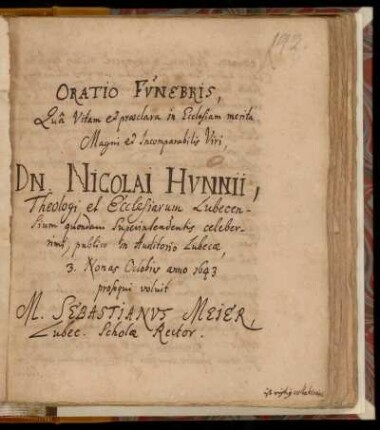 192.
ORATIO FÙNEBRIS,
Quâ Vitam et præclara in Ecclesiam merita
Magni et Incomparabilis Viri,
DN. NICOLAI HVNNII,
Theologi et Ecclesiarum Lubecen-
sium quondam Superintendentis celeber-
rimi, publicè in Auditorio Lubecæ,
3. Nonas Octobris anno 1643
prosequi voluit
M. SEBASTIANVS MEIER,
Lubec. Scholæ Rector.